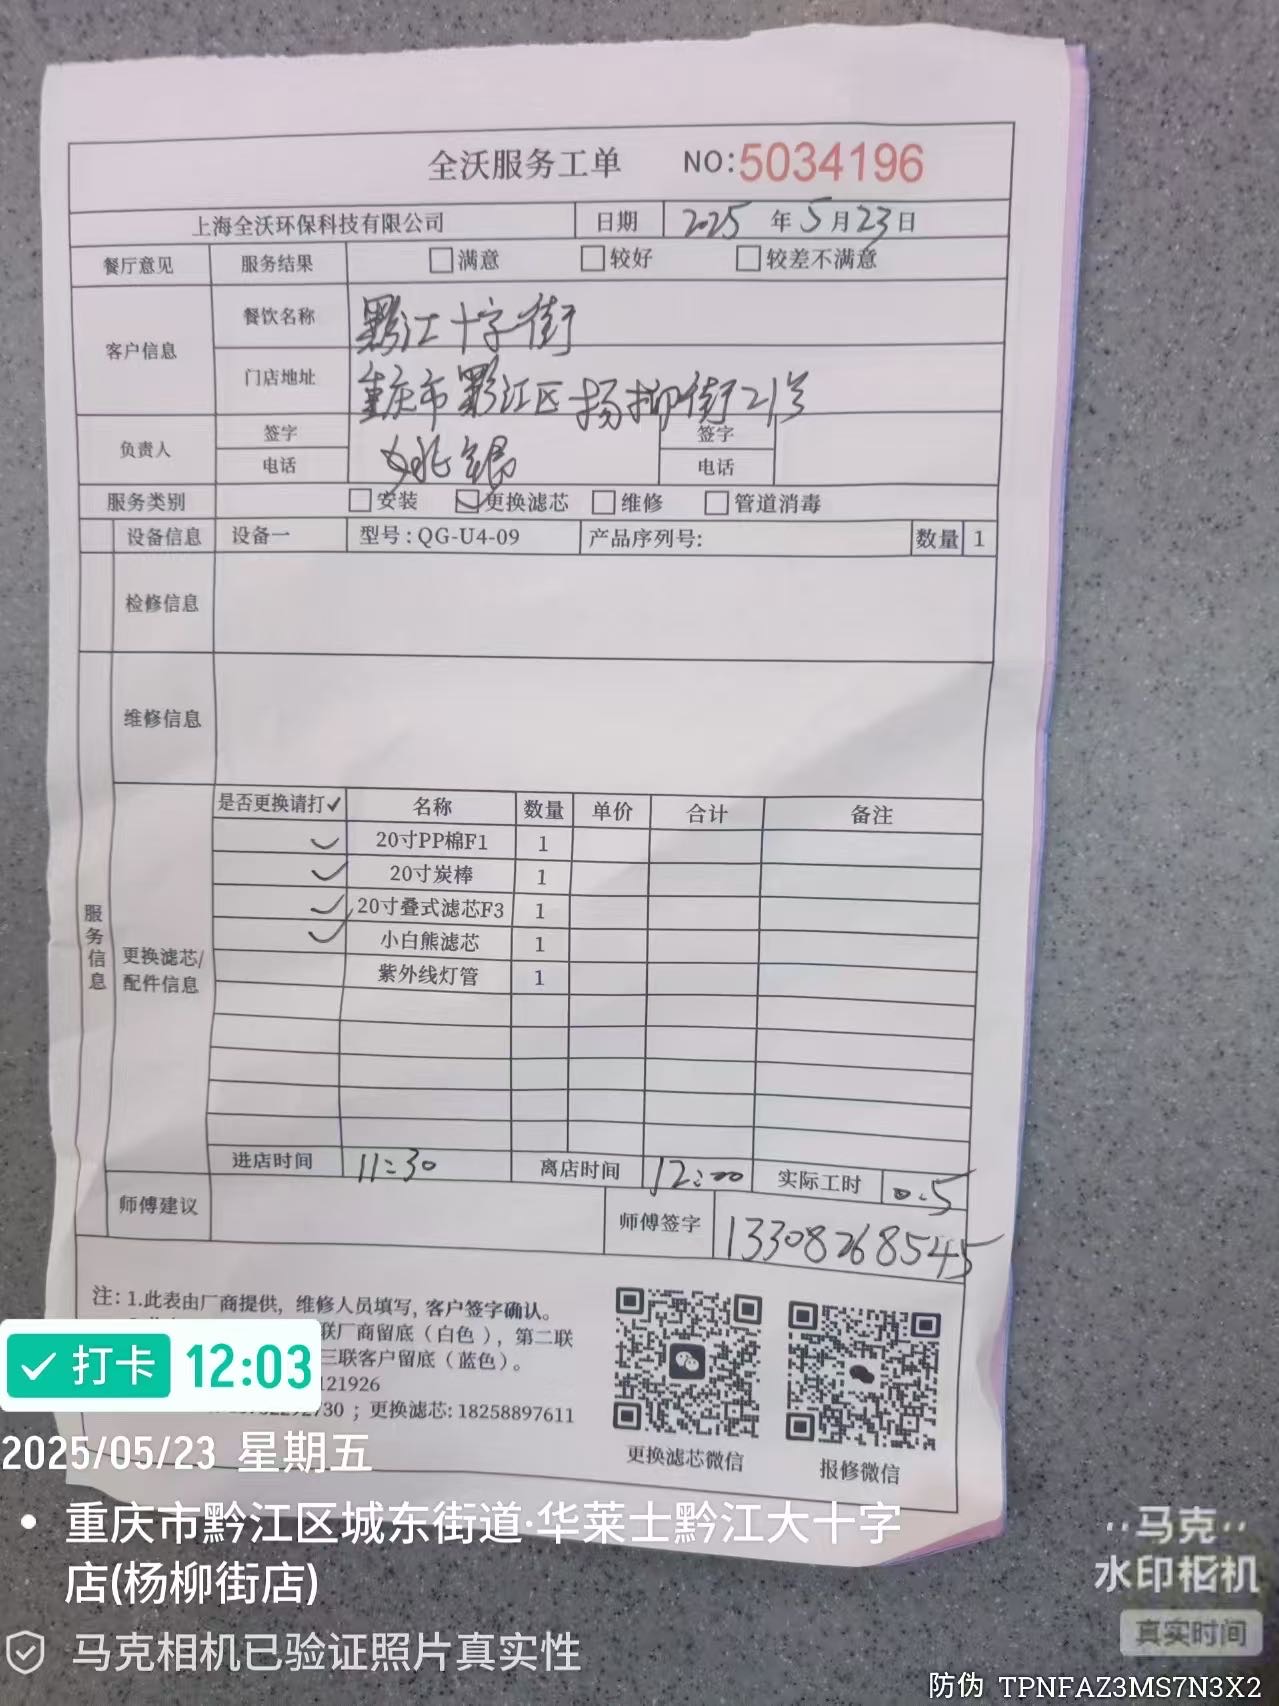 全沃服务工单 NO:5034196
上海全沃环保科技有限公司 日期 2025 年 5 月 23 日
餐厅意见 服务结果 满意 较好 较差不满意
客户信息 餐饮名称 黔江十字街
门店地址 重庆市黔江区杨柳街21号
负责人 签字 签字
电话 电话
服务类别 安装 更换滤芯 维修 管道消毒
设备信息 设备一 型号:QG-U4-09 产品序列号: 数量 1
检修信息
维修信息
服务信息
更换滤芯/
配件信息
是否更换请打✓ 名称 数量 单价 合计 备注
✓ 20寸PP棉F1 1
✓ 20寸炭棒 1
✓ 20寸叠式滤芯F3 1
✓ 小白熊滤芯 1
紫外线灯管 1
进店时间 11:30 离店时间 12:00 实际工时 0.5
师傅建议 师傅签字 13308268545
注: 1.此表由厂商提供, 维修人员填写, 客户签字确认。
联厂商留底(白色), 第二联
三联客户留底(蓝色)。
121926
730 ; 更换滤芯: 18258897611
更换滤芯微信 报修微信
打卡 12:03
2025/05/23 星期五
重庆市黔江区城东街道·华莱士黔江大十字
店(杨柳街店)
马克相机已验证照片真实性
马克
水印相机
真实时间
防伪 TPNFAZ3MS7N3X2